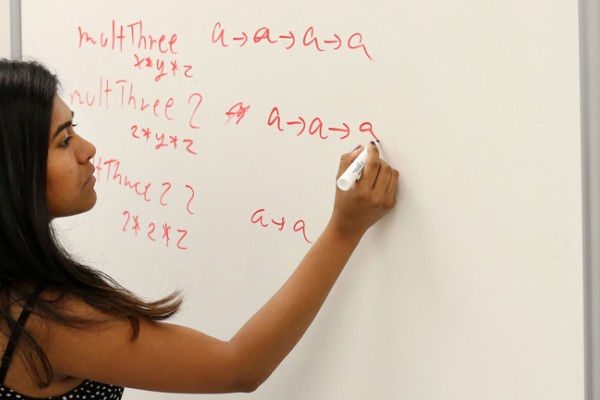 multThree a→a→a→a
x*y*z
multThree 2 a→a→a
2*y*z
tThree 2 2
2*2*z a→a